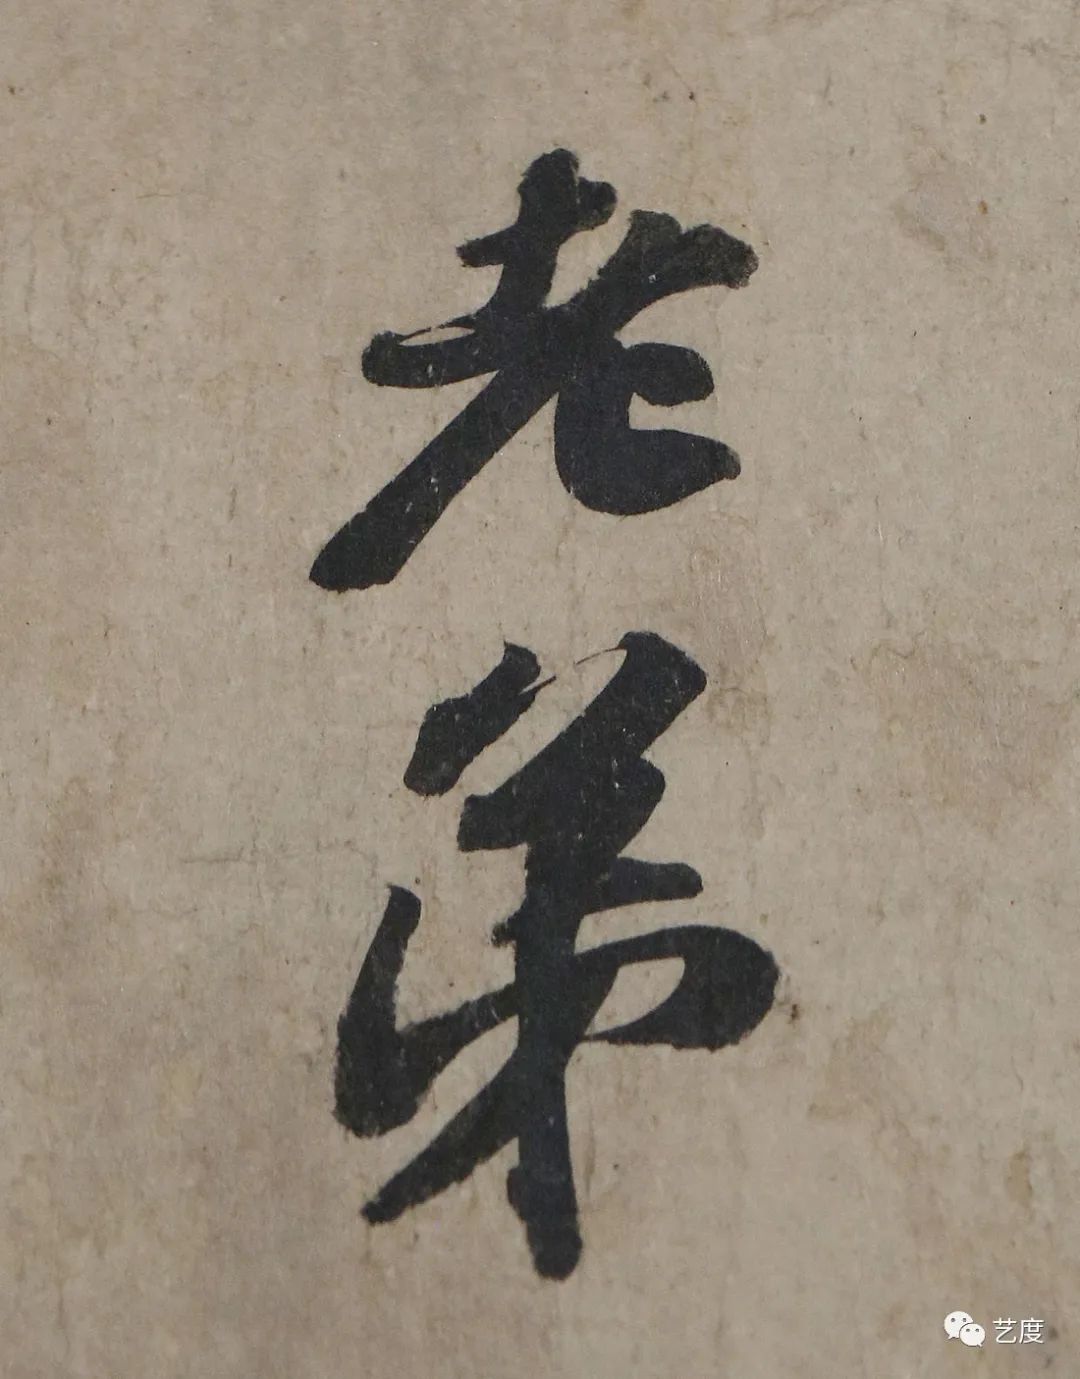 老弟
艺度